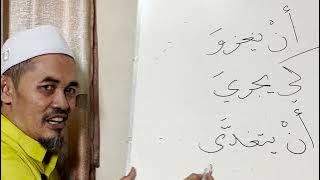 أنْ يغزوَ
كي يجريَ
أنْ يتغدَّى